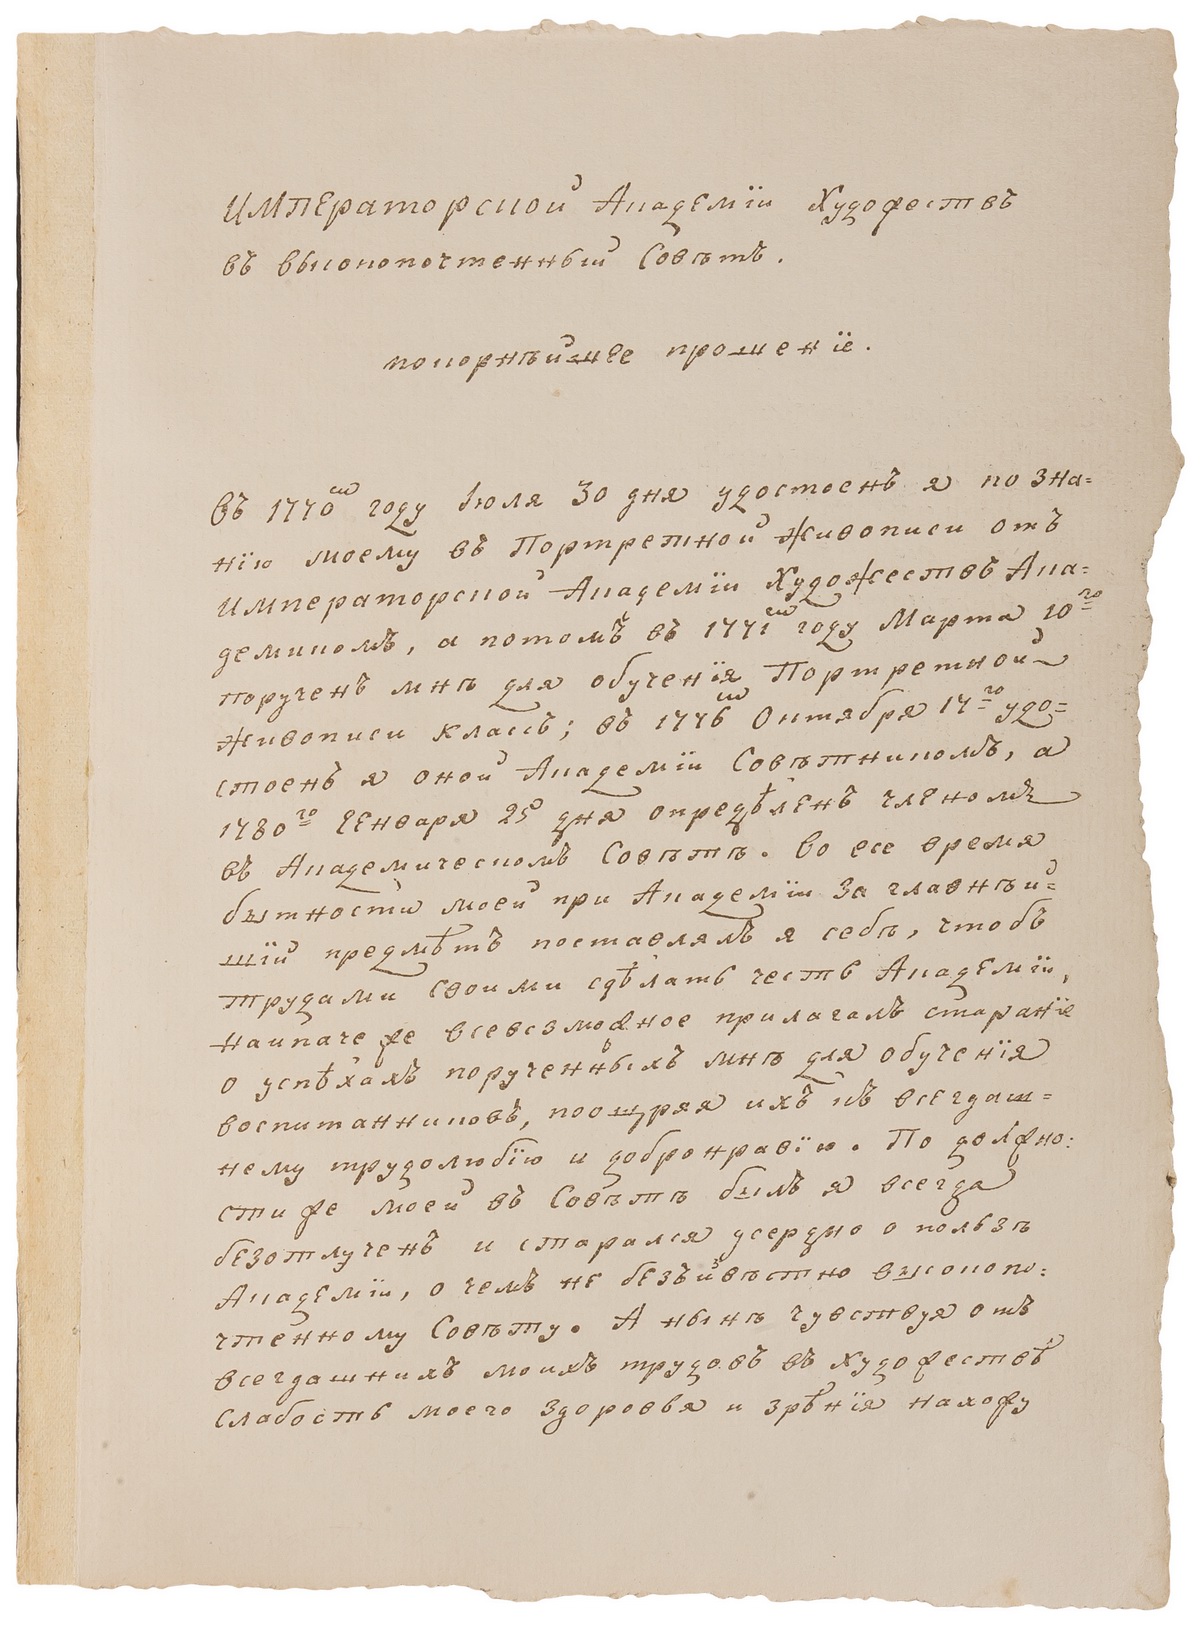 Императорской Академіи Художествъ
въ высокопочтенный Совѣтъ.
покорнѣйшее прошеніе.
Въ 1770мъ году Іюля 30 дня удостоенъ я по зна=
нію моему въ Портретной Живописи отъ
Императорской Академіи Художествъ Ака=
демикомъ, а потомъ въ 1771мъ году Марта 10го
порученъ мнѣ для обученія Портретной
Живописи классъ; въ 1776мъ Октября 17го удо=
стоенъ я оной Академіи Совѣтникомъ, а
1780го Генваря 25 дня опредѣленъ членомъ
въ Академическомъ Совѣтѣ. Во все время
бытности моей при Академіи за главнѣй=
шій предмѣтъ поставлялъ я себѣ, чтобъ
трудами своими сдѣлать честь Академіи,
наипаче же всевозможное прилагалъ стараніе
о успѣхахъ порученныхъ мнѣ для обученія
воспитанниковъ, поощряя ихъ къ всегдаш=
нему трудолюбію и добронравію. По должно:
сти же моей въ Совѣтѣ былъ я всегда
безотлученъ и старался усердно о пользѣ
Академіи, о чемъ не безъизвѣстно высокопо:
чтенному Совѣту. А нынѣ чувствуя отъ
всегдашнихъ моихъ трудовъ въ художествѣ
слабость моего здоровья и зрѣнія нахожу